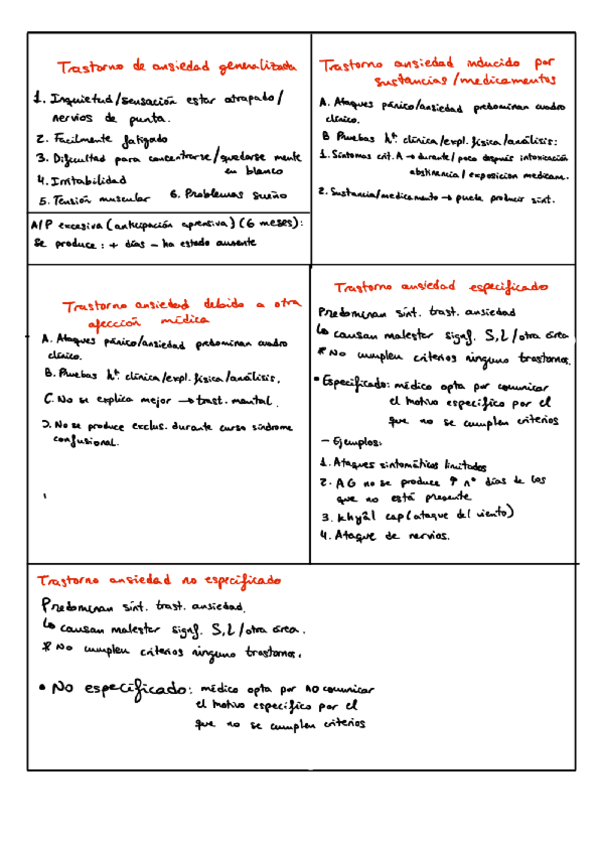 Trastorno de ansiedad generalizada
1. Inquietud/sensación estar atrapado/
nervios de punta.
2. Facilmente fatigado
3. Dificultad para concentrarse/quedarse mente
en blanco
4. Irritabilidad
5. Tensión muscular 6. Problemas sueño
A/P excesiva (anticipación aprensiva) (6 meses):
Se produce: + días - ha estado ausente
Trastorno ansiedad inducido por
sustancias/medicamentos
A. Ataques pánico/ansiedad predominan cuadro
clínico.
B Pruebas hª clínica/expl. física/análisis:
1. Síntomas crit. A → durante/poco después intoxicación
abstinencia/exposicion medicam.
2. Sustancia/medicamento → puede producir sínt.
Trastorno ansiedad debido a otra
afección médica
A. Ataques pánico/ansiedad predominan cuadro
clínico.
B. Pruebas hª clínica/expl. física/análisis.
C. No se explica mejor → trast. mental.
D. No se produce exclus. durante curso síndrome
confusional.
Trastorno ansiedad especificado
Predominan sínt. trast. ansiedad
↳ causan malestar signf. S,L/otra área
* No cumplen criterios ninguno trastornos.
• Especificado: médico opta por comunicar
el motivo específico por el
que no se cumplen criterios
- Ejemplos:
1. Ataques sintomáticos limitados
2. AG no se produce ↑ nº días de los
que no está presente
3. Khyâl cap (ataque del viento)
4. Ataque de nervios.
Trastorno ansiedad no especificado
Predominan sínt. trast. ansiedad.
↳ causan malestar signf. S,L/otra área.
* No cumplen criterios ninguno trastornos.
• No especificado: médico opta por no comunicar
el motivo específico por el
que no se cumplen criterios